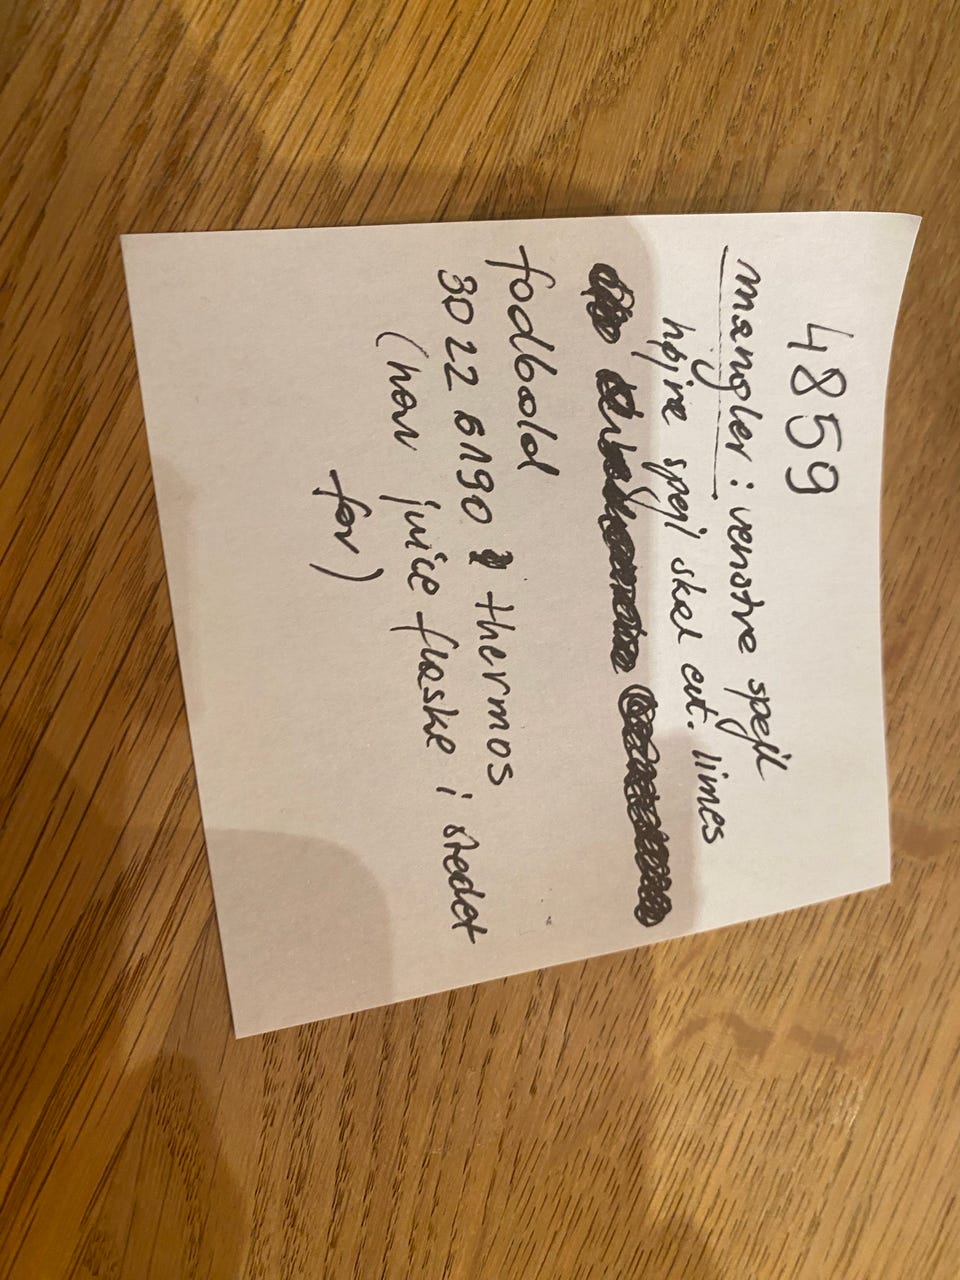 4859
mangler: venstre spejl
højre spejl skal evt. limes
fodbold
3022 6190 thermos
(har juice flaske i stedet
for)